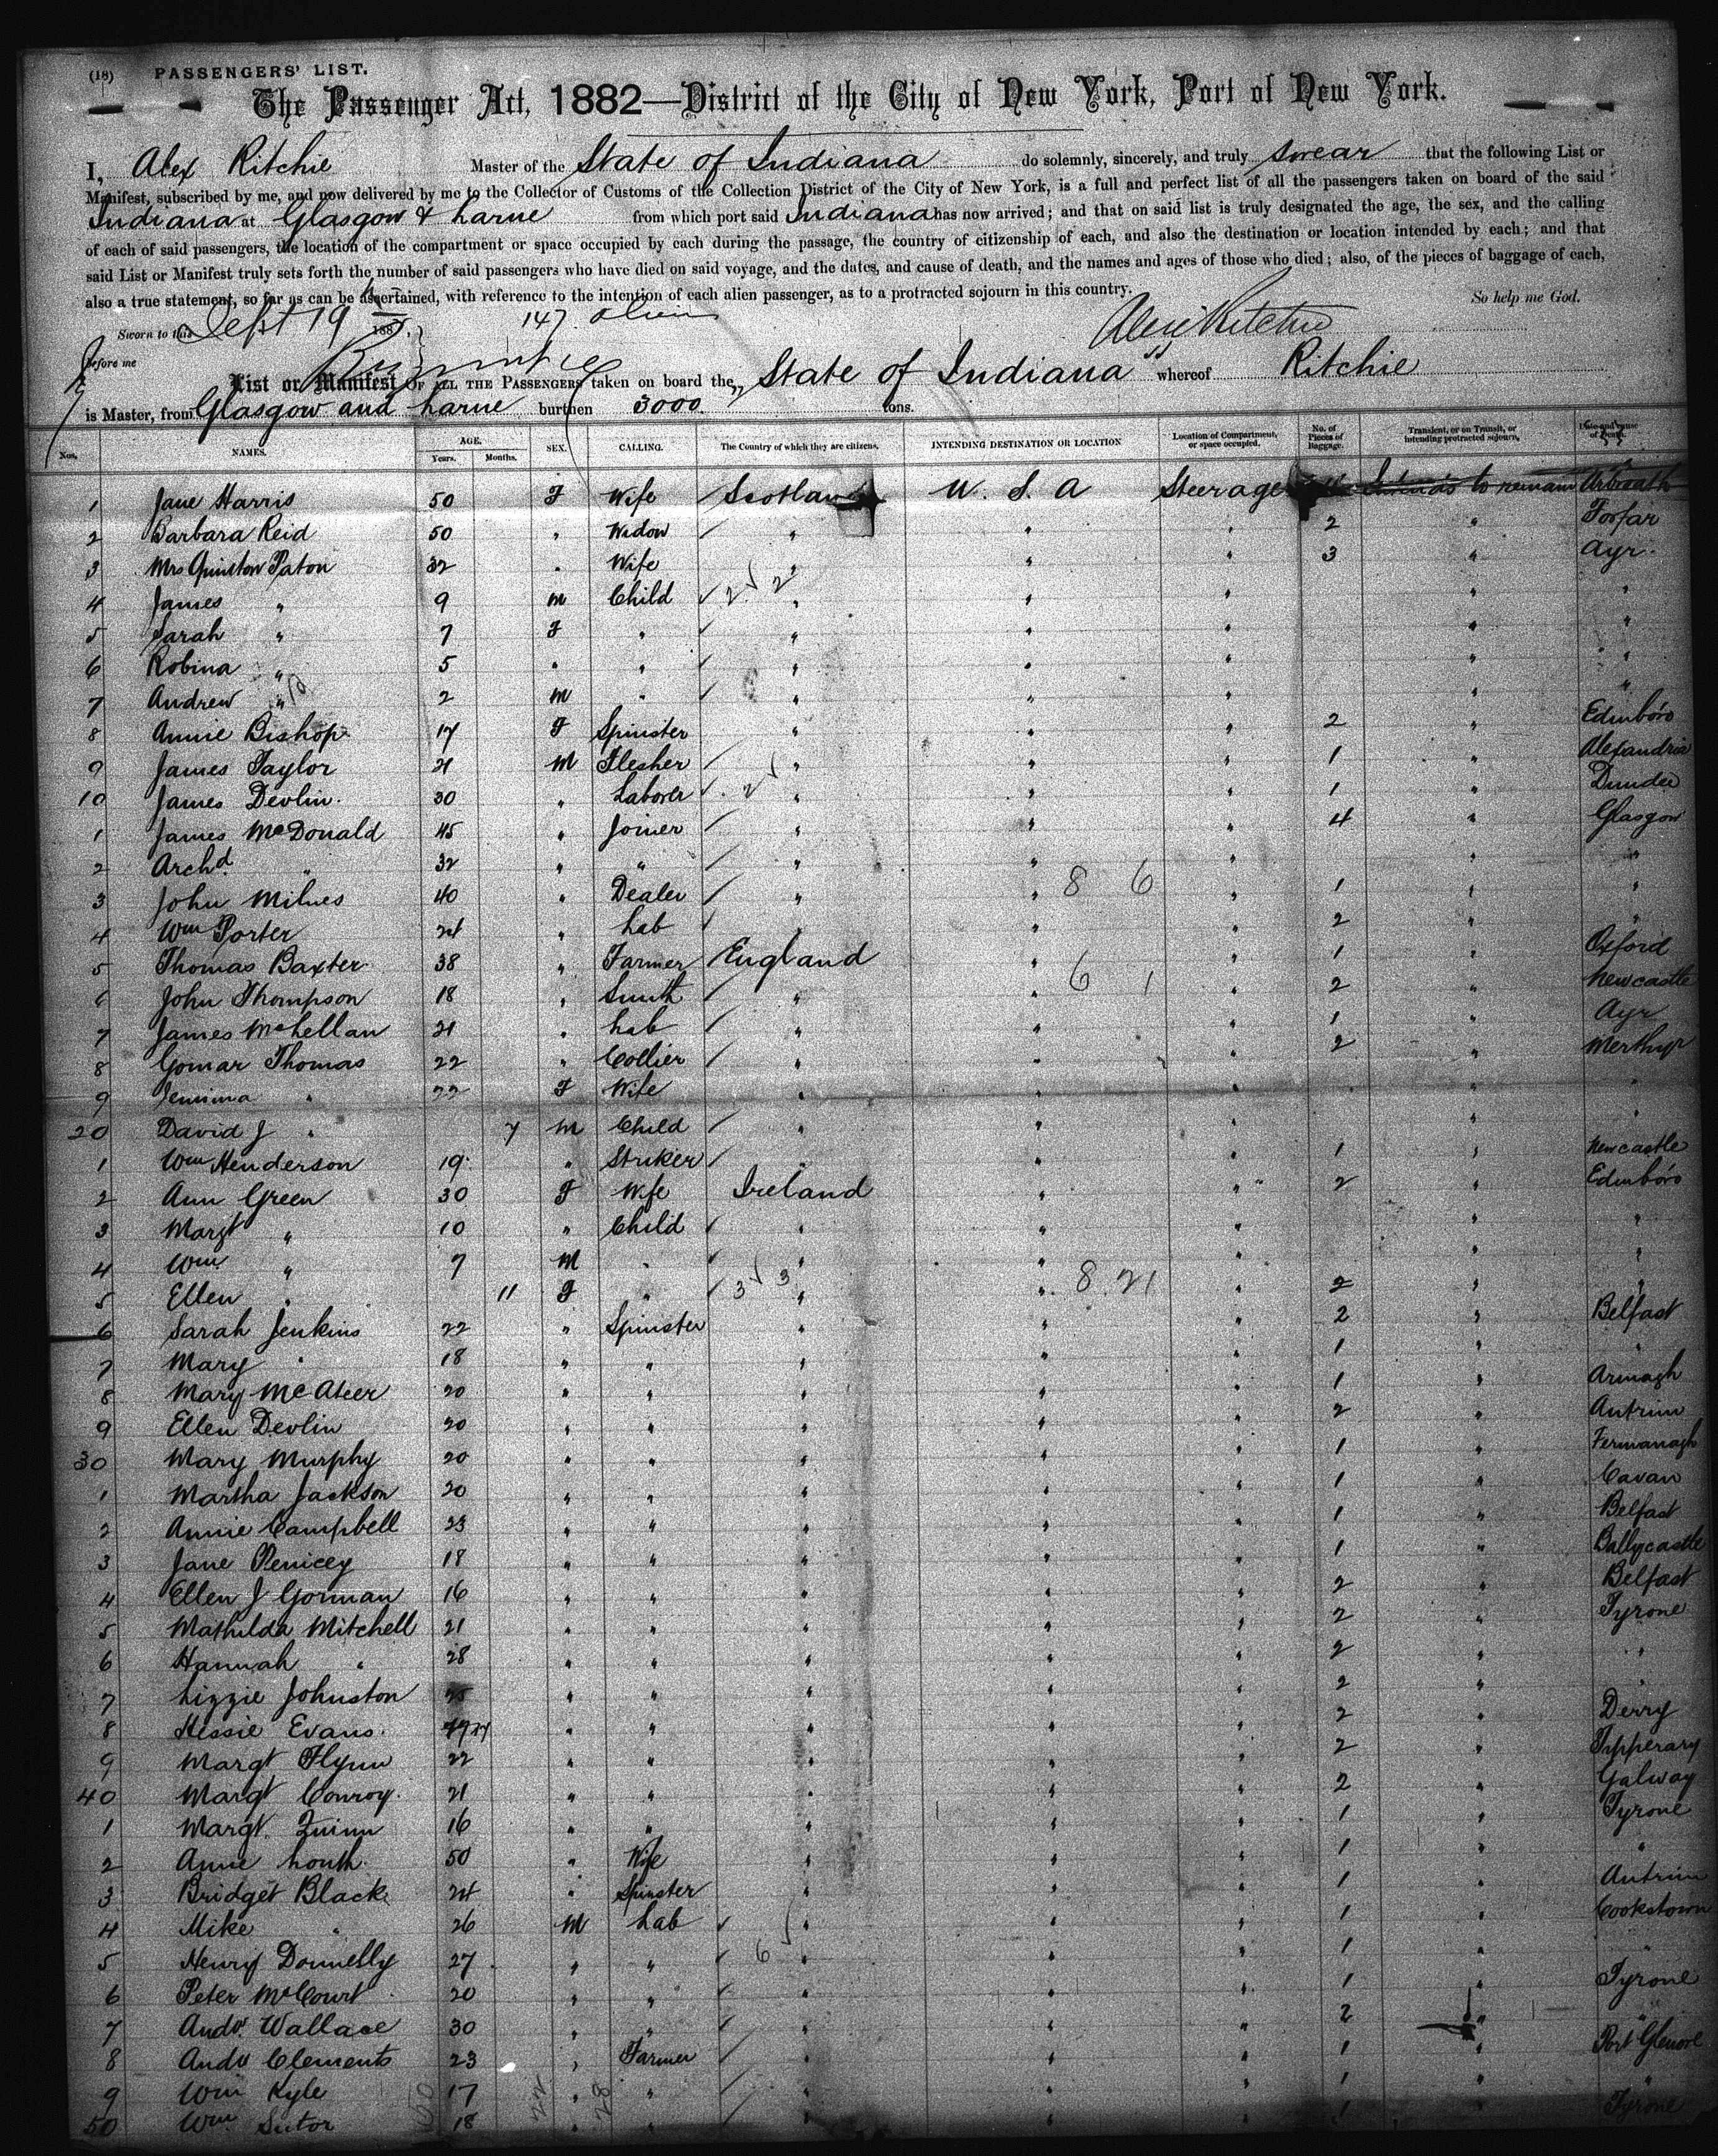 (18) PASSENGERS' LIST.
The Passenger Act, 1882—District of the City of New York, Port of New York.
I, Alex Ritchie Master of the State of Indiana do solemnly, sincerely, and truly swear that the following List or
Manifest, subscribed by me, and now delivered by me to the Collector of Customs of the Collection District of the City of New York, is a full and perfect list of all the passengers taken on board of the said
Indiana at Glasgow & Larne from which port said Indiana has now arrived; and that on said list is truly designated the age, the sex, and the calling
of each of said passengers, the location of the compartment or space occupied by each during the passage, the country of citizenship of each, and also the destination or location intended by each; and that
said List or Manifest truly sets forth the number of said passengers who have died on said voyage, and the dates, and cause of death, and the names and ages of those who died; also, of the pieces of baggage of each,
also a true statement, so far as can be ascertained, with reference to the intention of each alien passenger, as to a protracted sojourn in this country. So help me God.
Sworn to this Sept 19 188 147 Alex Ritchie
Before me
List or Manifest OF ALL THE PASSENGERS taken on board the "State of Indiana" whereof Ritchie
is Master, from Glasgow and Larne burthen 3000 tons.
Nos. NAMES. AGE. Years. Months. SEX. CALLING. The Country of which they are citizens. INTENDING DESTINATION OR LOCATION Location of Compartment, or space occupied. No. of Pieces of Baggage. Transient, or on Transit, or intending protracted sojourn. Date and cause of Death.
1 Jane Harris 50 F Wife Scotland U. S. A Steerage Intends to remain Arbroath
2 Barbara Reid 50 " Widow " " " 2 " Forfar
3 Mrs Paton 32 " Wife " " " 3 " Ayr
4 James " 9 M Child " " " " "
5 Sarah " 7 F " " " " " "
6 Robina " 5 " " " " " " "
7 Andrew " 2 M " " " " " "
8 Annie Bishop 17 F Spinster " " " 2 " Edinboro
9 James Taylor 21 M Flesher " " " 1 " Alexandria
10 James Devlin 30 " Laborer " " " 1 " Dundee
1 James McDonald 45 " Joiner " " " 4 " Glasgow
2 Archd. " 32 " " " " " " "
3 John Milnes 40 " Dealer " " 8 6 " 1 " "
4 Wm Porter 24 " Lab " " " 2 " "
5 Thomas Baxter 38 " Farmer England " " 1 " Oxford
6 John Thompson 18 " Smith " " 6 1 " 2 " Newcastle
7 James McLellan 21 " Lab " " " 1 " Ayr
8 Gomar Thomas 22 " Collier " " " 2 " Merthyr
9 Jemima " 22 F Wife " " " " "
20 David J " 7 M Child " " " " "
1 Wm Henderson 19 " Striker " " " 1 " Newcastle
2 Ann Green 30 F Wife Ireland " " 2 " Edinboro
3 Margt " 10 " Child " " " " "
4 Wm " 7 M " " " " " "
5 Ellen " 11 F " 3 3 " " 8 21 " 2 " "
6 Sarah Jenkins 22 " Spinster " " " 2 " Belfast
7 Mary " 18 " " " " " 1 " "
8 Mary McAteer 20 " " " " " 1 " Armagh
9 Ellen Devlin 20 " " " " " 2 " Antrim
30 Mary Murphy 20 " " " " " 1 " Fermanagh
1 Martha Jackson 20 " " " " " 1 " Cavan
2 Annie Campbell 23 " " " " " 1 " Belfast
3 Jane 18 " " " " " 1 " Ballycastle
4 Ellen J Gorman 16 " " " " " 2 " Belfast
5 Mathilda Mitchell 21 " " " " " 2 " Tyrone
6 Hannah " 28 " " " " " 2 " "
7 Lizzie Johnston " " " " " 2 " "
8 Hessie Evans " " " " " 2 " Derry
9 Margt Flynn 22 " " " " " 2 " Tipperary
40 Margt Conroy 21 " " " " " 2 " Galway
1 Margt. Quinn 16 " " " " " 1 " Tyrone
2 Anne 50 " Wife " " " 1 " "
3 Bridget Black 24 " Spinster " " " 1 " Antrim
4 Mike " 26 M Lab " " " 1 " Cookstown
5 Henry Donnelly 27 " " 6 " " " 1 " "
6 Peter McCourt 20 " " " " " 1 " Tyrone
7 Andw. Wallace 30 " " " " " 2 " "
8 Andw Clements 23 " Farmer " " " 1 " Port Glenone
9 Wm Kyle 17 " " " " " 1 " "
50 Wm Sutor 18 " " " " " 1 " Tyrone